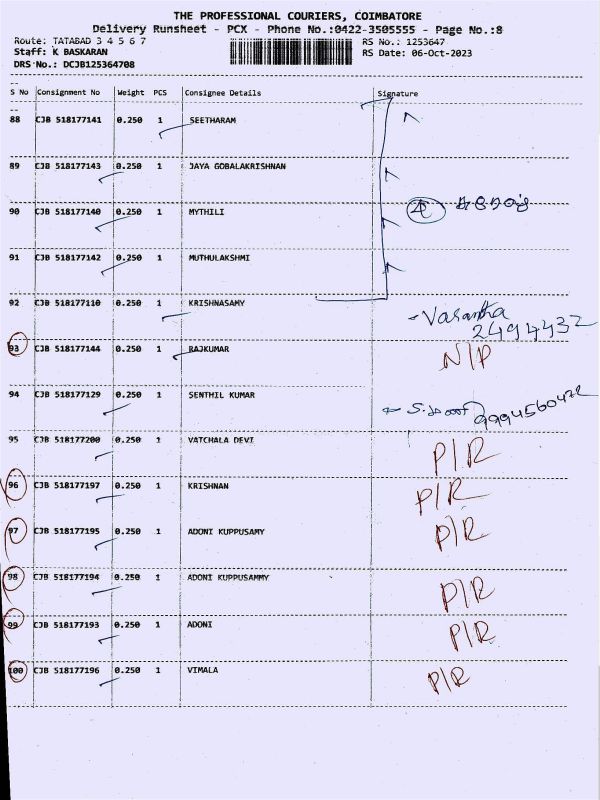 THE PROFESSIONAL COURIERS, COIMBATORE
Delivery Runsheet - PCX - Phone No.:0422-3505555 - Page No.:8
Route: TATABAD 3 4 5 6 7
RS No.: 1253647
Staff: K BASKARAN
RS Date: 06-Oct-2023
DRS No.: DCJB125364708
S No Consignment No Weight PCS Consignee Details Signature
88 CJB 518177141 0.250 1 SEETHARAM
89 CJB 518177143 0.250 1 JAYA GOBALAKRISHNAN
90 CJB 518177140 0.250 1 MYTHILI
91 CJB 518177142 0.250 1 MUTHULAKSHMI
92 CJB 518177110 0.250 1 KRISHNASAMY - Vasantha
2494432
93 CJB 518177144 0.250 1 RAJKUMAR N/P
94 CJB 518177129 0.250 1 SENTHIL KUMAR
95 CJB 518177200 0.250 1 VATCHALA DEVI P/R
96 CJB 518177197 0.250 1 KRISHNAN P/R
97 CJB 518177195 0.250 1 ADONI KUPPUSAMY P/R
98 CJB 518177194 0.250 1 ADONI KUPPUSAMMY P/R
99 CJB 518177193 0.250 1 ADONI P/R
100 CJB 518177196 0.250 1 VIMALA P/R